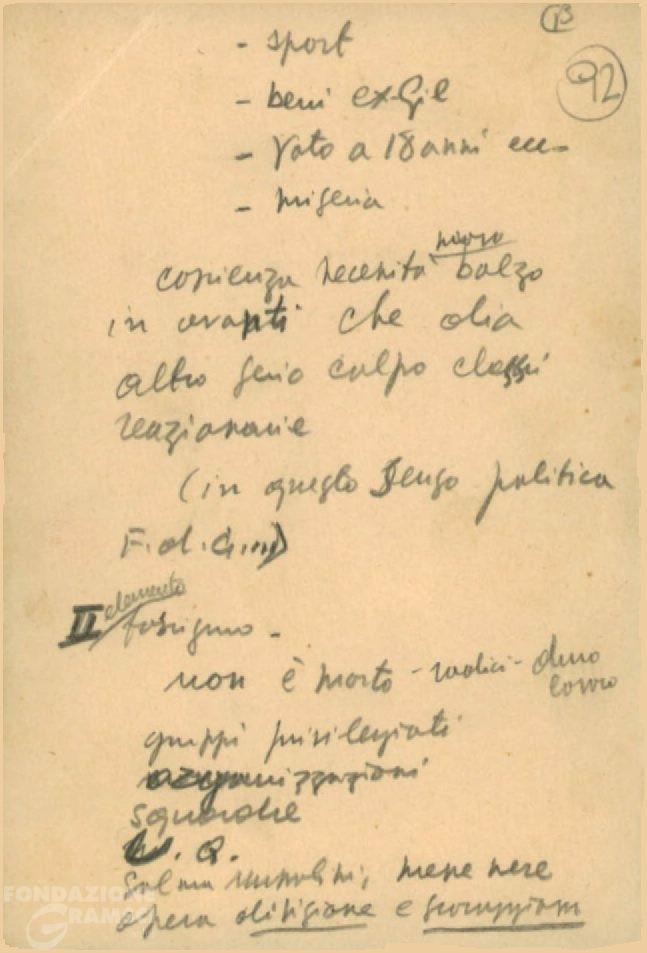 B
92
- sport
- beni ex-Gil
- Voto a 18 anni ecc-
- miseria
coscienza necessità nuovo balzo
in avanti che dia
altro serio colpo classi
reazionarie
(in questo senso politica
F.d.G.
II elemento
fascismo -
non è morto - radici - duro lavoro
gruppi privilegiati
organizzazioni
squadre
U.Q.
Salma mussolini, mene nere
opera divisione e
FONDAZIONE
GRAMSCI